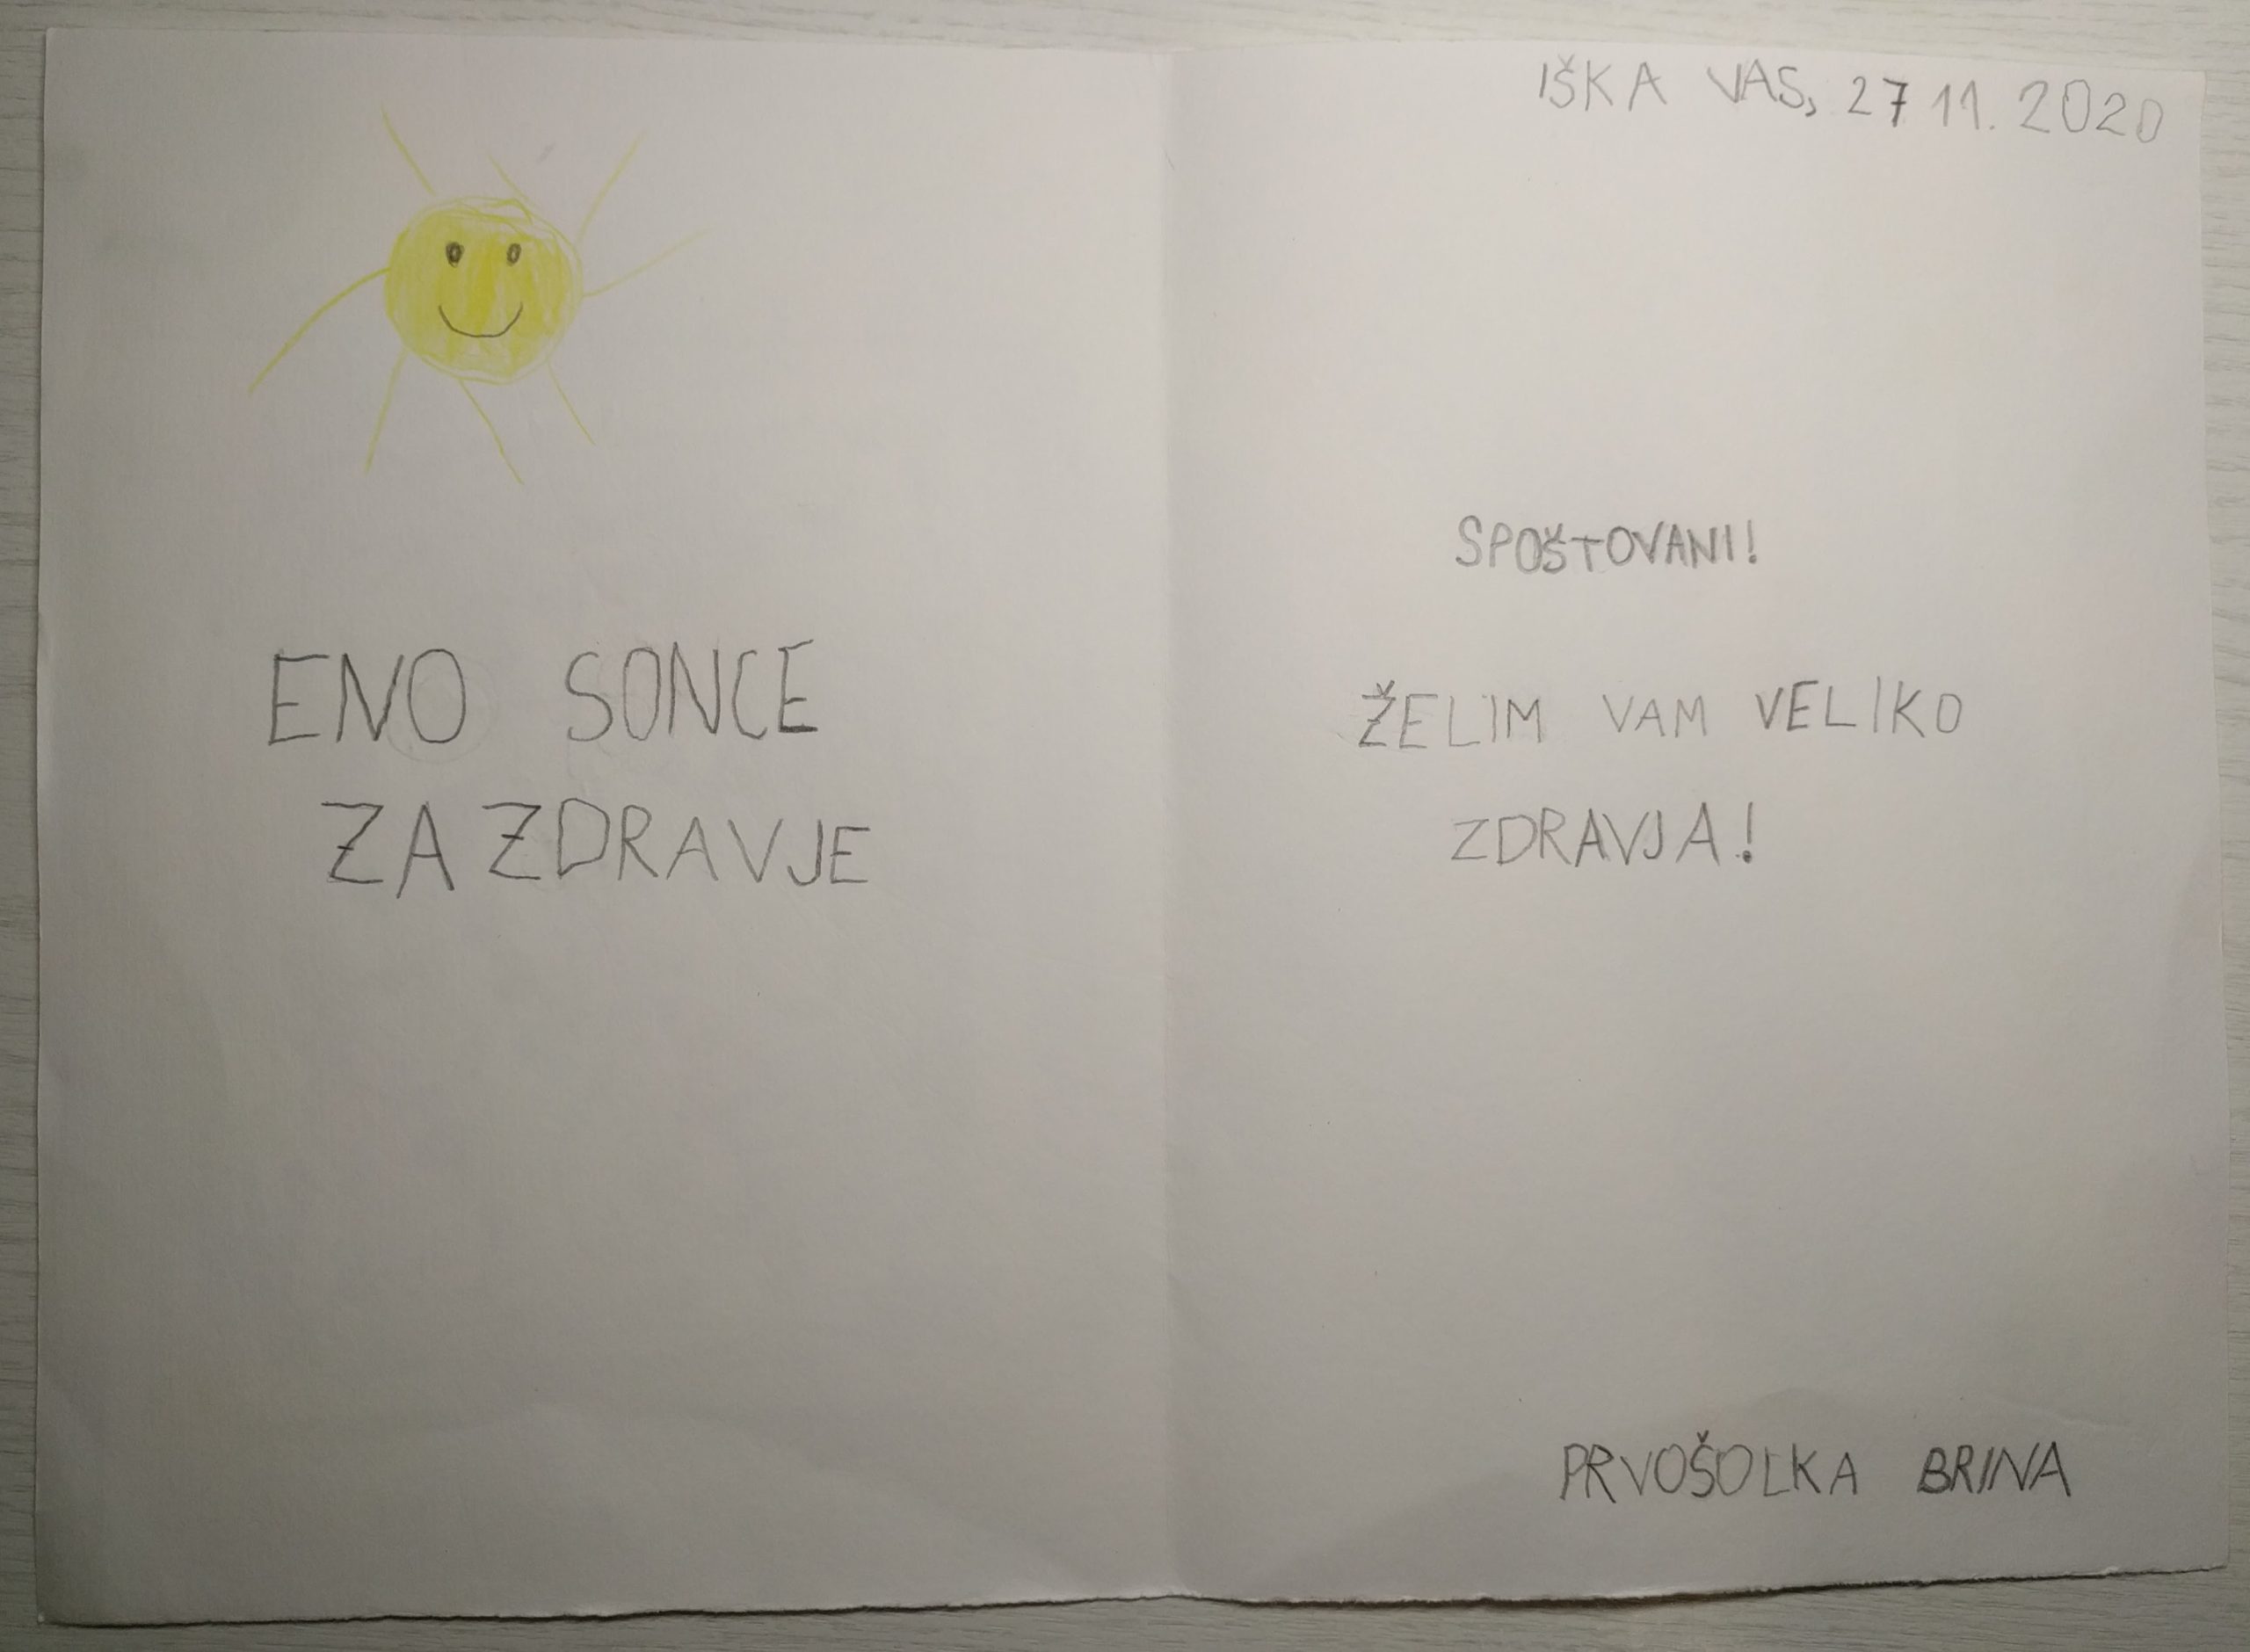 ENO SONCE
ZA ZDRAVJE
IŠKA VAS, 27 11. 2020
SPOŠTOVANI!
ŽELIM VAM VELIKO
ZDRAVJA!
PRVOŠOLKA BRINA